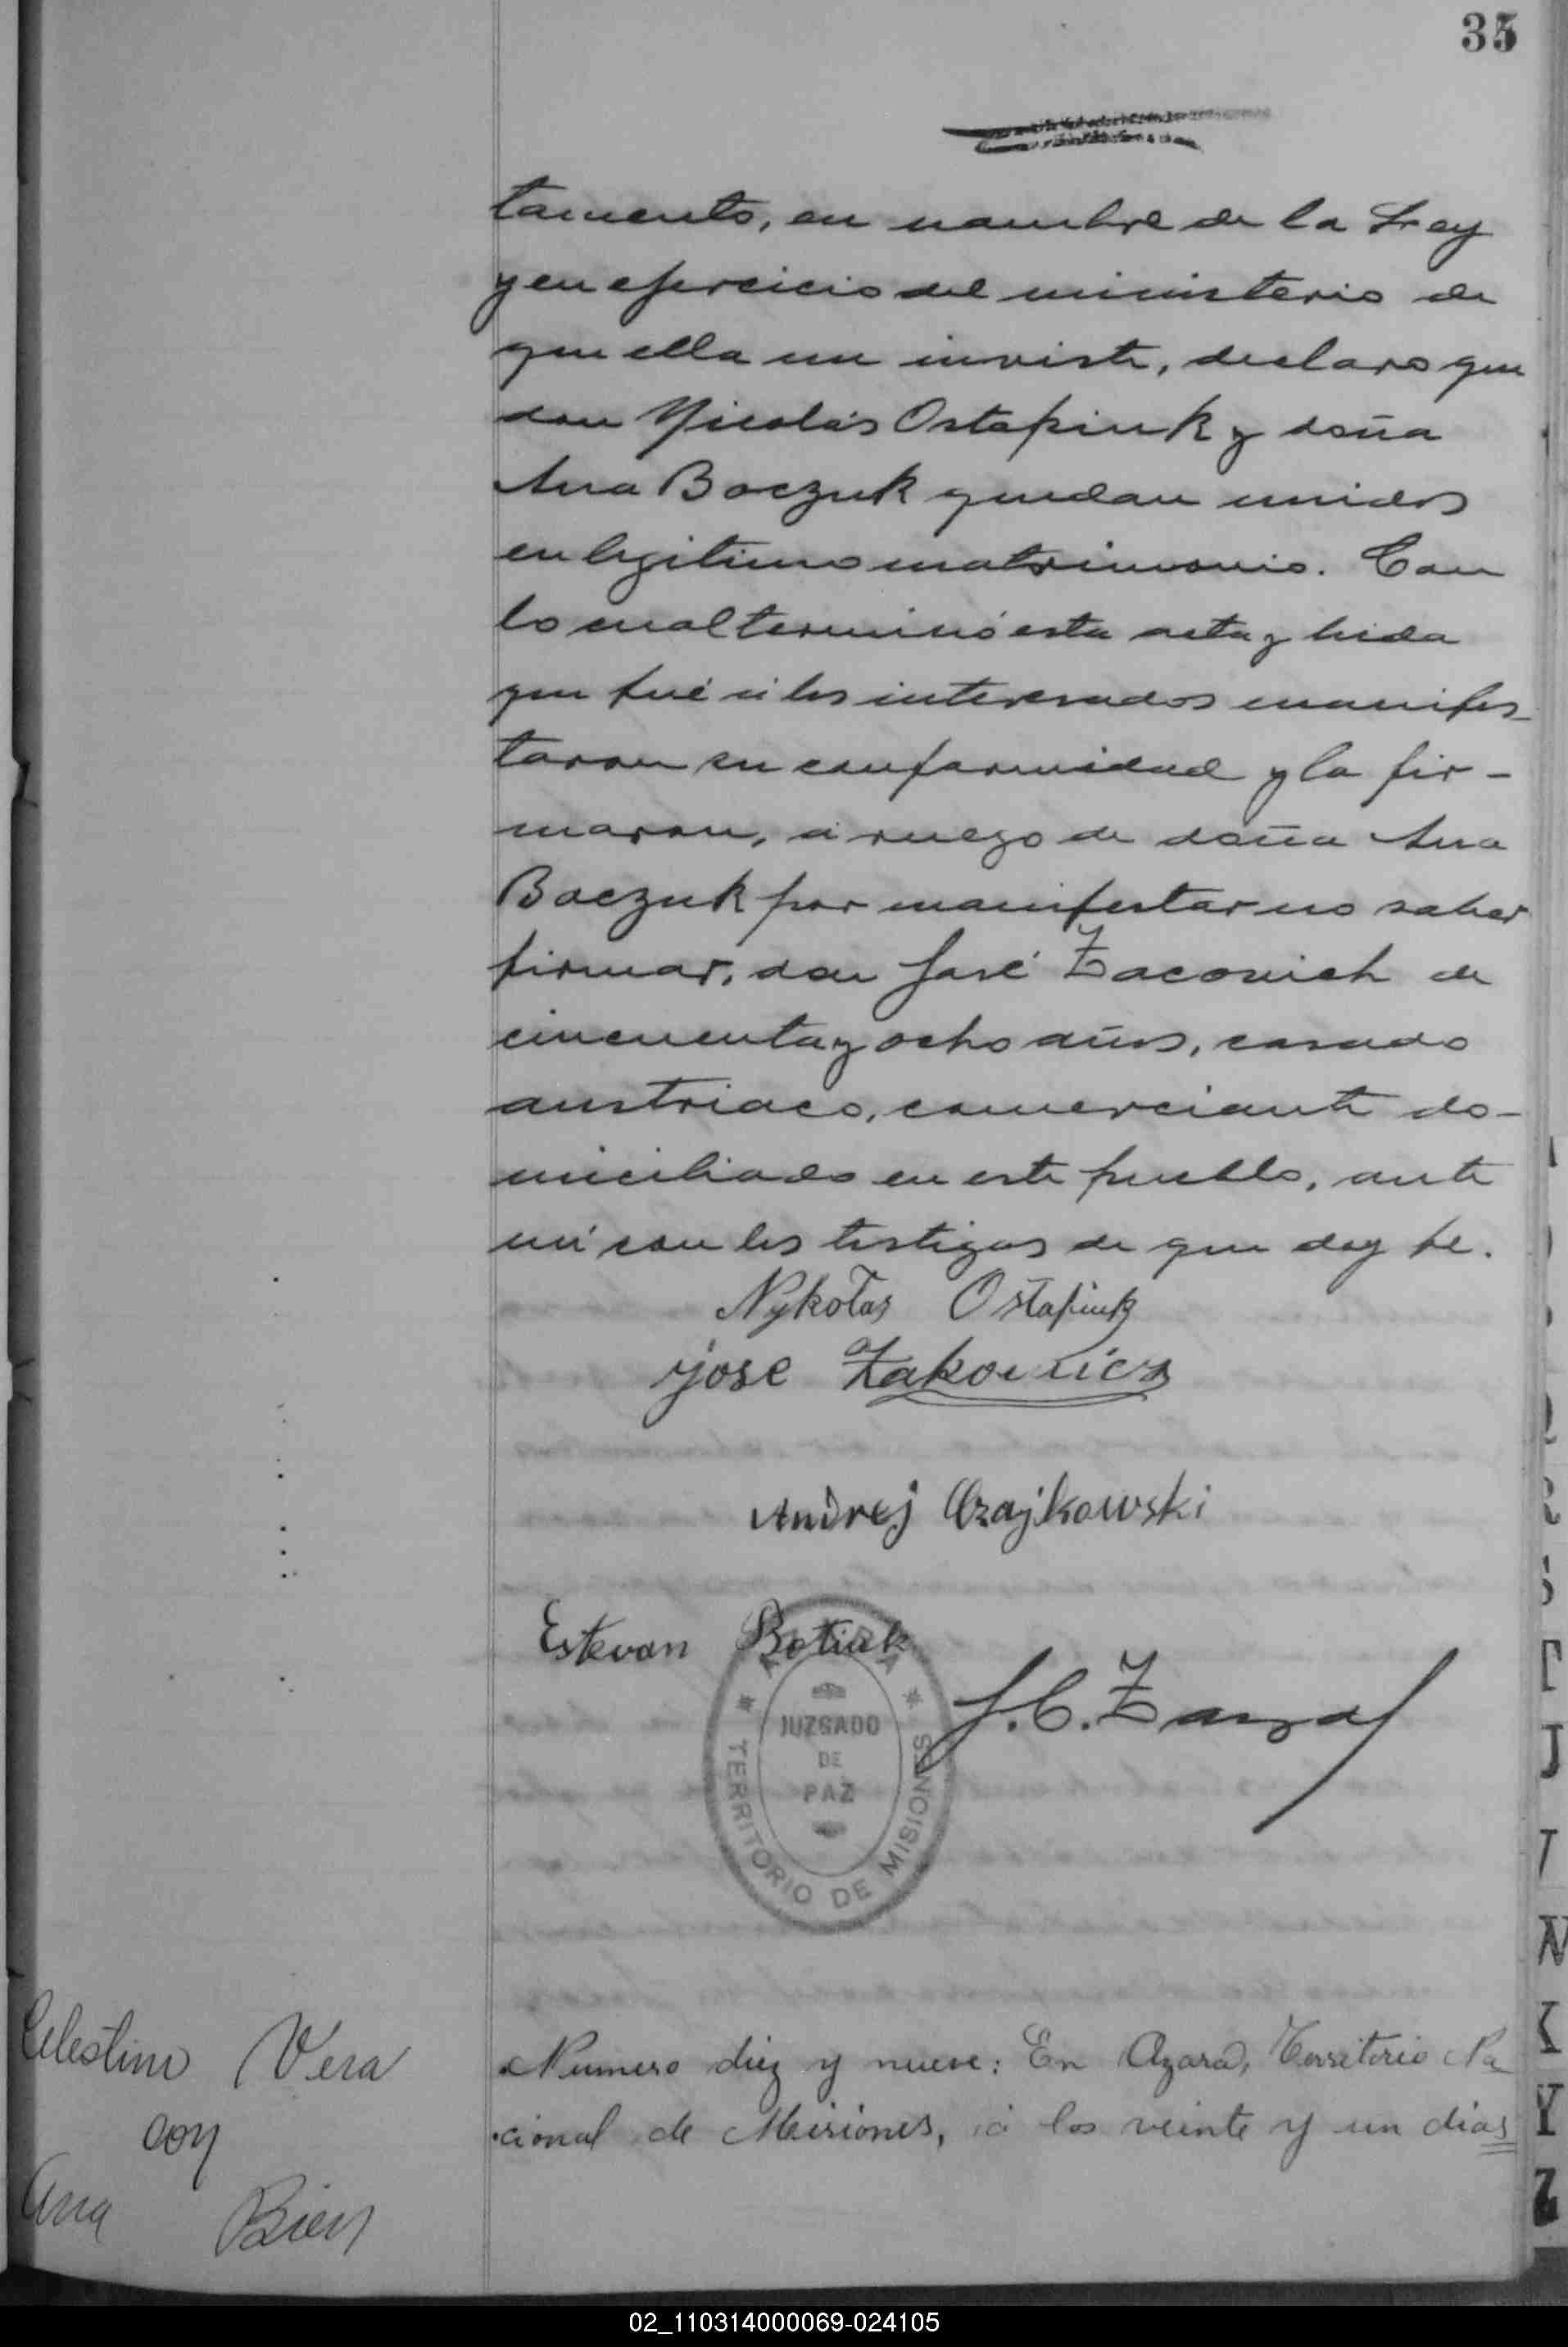 35
tamento, en nombre de la Ley
y en ejercicio del ministerio de
que ella me inviste, declaro que
don Nicolás Ostapiuk y doña
Ana Boczuk quedan unidos
en legitimo matrimonio. Con
lo cual terminó esta acta y leida
que fué á los interesados manifes-
taron su conformidad y la fir-
maron, á ruego de doña Ana
Boczuk por manifestar no saber
firmar, don José Zacovich de
cincuenta y ocho años, casado
austriaco, comerciante do-
miciliado en este pueblo, ante
mí con los testigos de que doy fe.
Nykołaj Ostapiuk
jose Zakowicz
Andrej Czajkowski
Estevan Botiuk
J. C. Zarza
AZARA
JUZGADO
DE
PAZ
TERRITORIO DE MISIONES
Celestino Vera
con
Ana Bien
Numero diez y nueve: En Azara, Territorio Na
cional de Misiones, á los veinte y un dias
Q
R
S
T
J
V
N
X
Y
Z
02_110314000069-024105